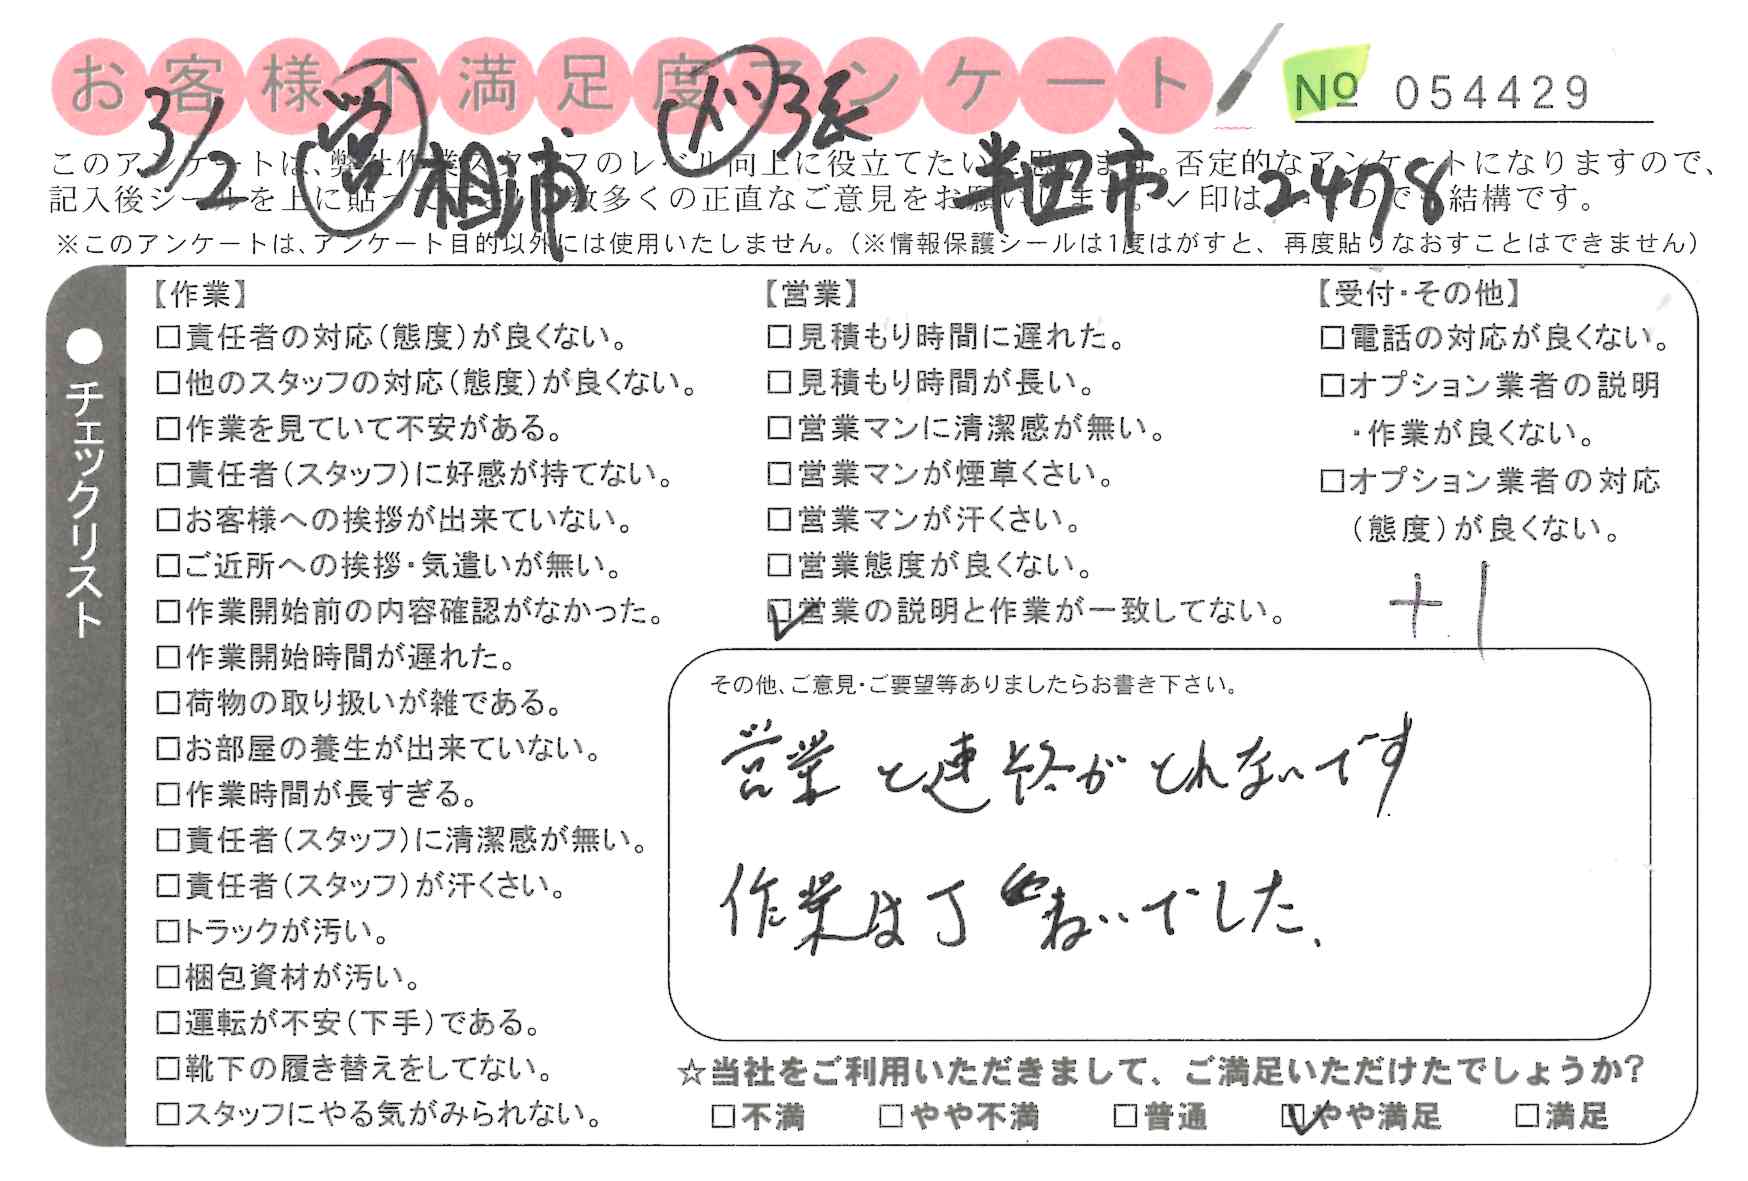 お客様不満足度アンケート
№ 054429
3/2 営 相浦 メツ 3張 半田市 2478
このアンケートは、弊社作業スタッフのレベル向上に役立てたいと思います。否定的なアンケートになりますので、
記入後シールを上に貼って下さい。数多くの正直なご意見をお願いします。✓印はいくつでも結構です。
※このアンケートは、アンケート目的以外には使用いたしません。(※情報保護シールは1度はがすと、再度貼りなおすことはできません)
●チェックリスト
【作業】
□責任者の対応(態度)が良くない。
□他のスタッフの対応(態度)が良くない。
□作業を見ていて不安がある。
□責任者(スタッフ)に好感が持てない。
□お客様への挨拶が出来ていない。
□ご近所への挨拶・気遣いが無い。
□作業開始前の内容確認がなかった。
□作業開始時間が遅れた。
□荷物の取り扱いが雑である。
□お部屋の養生が出来ていない。
□作業時間が長すぎる。
□責任者(スタッフ)に清潔感が無い。
□責任者(スタッフ)が汗くさい。
□トラックが汚い。
□梱包資材が汚い。
□運転が不安(下手)である。
□靴下の履き替えをしてない。
□スタッフにやる気がみられない。
【営業】
□見積もり時間に遅れた。
□見積もり時間が長い。
□営業マンに清潔感が無い。
□営業マンが煙草くさい。
□営業マンが汗くさい。
□営業態度が良くない。
☑営業の説明と作業が一致してない。
【受付・その他】
□電話の対応が良くない。
□オプション業者の説明
・作業が良くない。
□オプション業者の対応
(態度)が良くない。
+1
その他、ご意見・ご要望等ありましたらお書き下さい。
営業と連絡がとれないです
作業は丁ねいでした、
☆当社をご利用いただきまして、ご満足いただけたでしょうか?
□不満 □やや不満 □普通 ☑やや満足 □満足